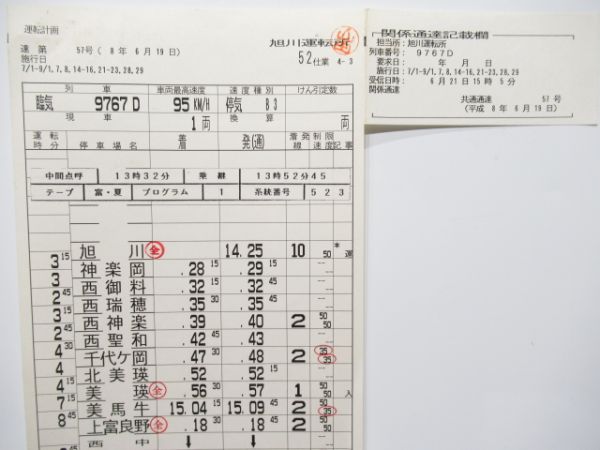 運転計画
達第 57号(8年 6月19日)
施行日
7/1-9/1,7,8,14-16,21-23,28,29
旭川運転所
52仕業 4-3
列車 車両最高速度 速度種別 けん引定数
臨気 9767D 95KM/H 停気 B3
現車 1両 換算 両
運転時分 停車場名 着 発(通) 着発線 制限速度 記事
中間点呼 13時32分 乗継 13時52分45
テープ 富・夏 プログラム 1 系統番号 523
旭川 全 14.25 10 50 運
3 15 神楽岡 .28 15 .29 15
3 西御料 .32 15 .32 15
2 45 西瑞穂 .35 30 .35 30
3 15 西神楽 .39 .40 2 50 50
2 45 西聖和 .42 45 .43
4 30 千代ケ岡 .47 30 .48 2 35 35
4 北美瑛 .52 .52 15
4 15 美瑛 全 .56 30 .57 1 50 50 入
7 15 美馬牛 15.04 15 15.09 45 2 50 35
8 45 上富良野 全 .18 30 .18 30 2 50 50
西中 ↓ ↓
関係通達記載欄
担当所:旭川運転所
列車番号:9767D
要求日: 年 月 日
施行日:7/1-9/1,7,8,14-16,21-23,28,29
受信日時: 6月21日15時 5分
関係通達
共通通達 57号
(平成 8年 6月19日)